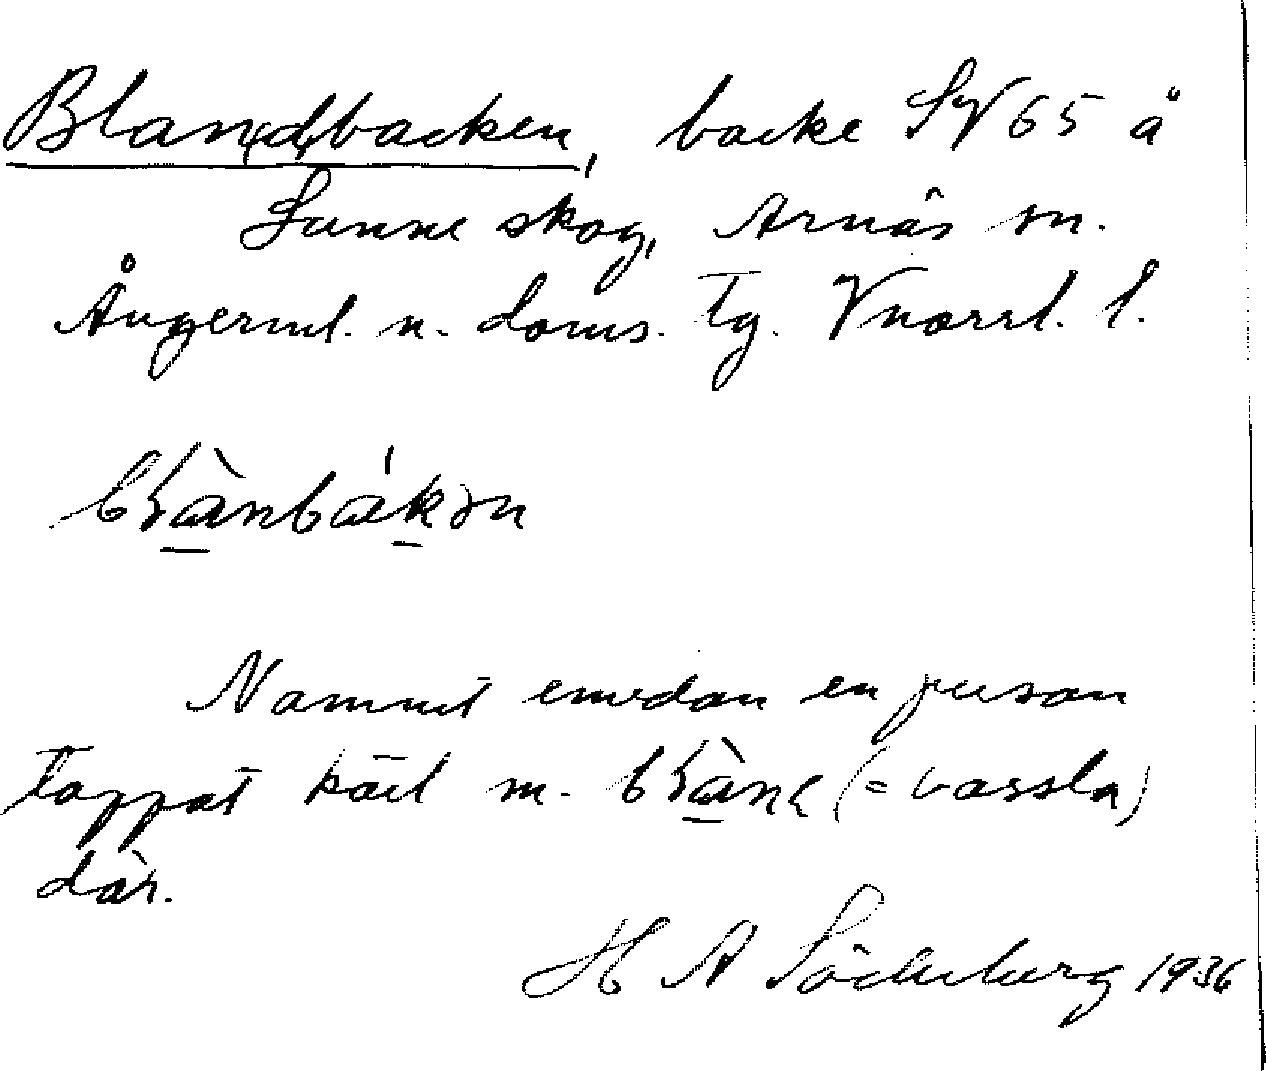 Blan(d)backen, backe SV 65 å
Sunne skog, Arnäs sn.
Ångerml. n. doms. tg. Vnorrl. l.
Namnet emedan en person
tappat kärl m. (= vassla)
där.
H A Söderberg 1936